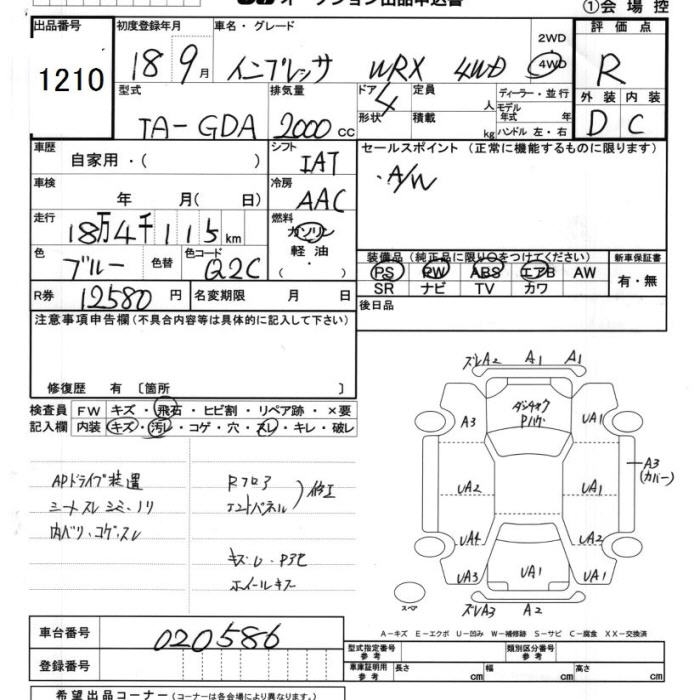 オークション出品申込書
①会場控
出品番号 初度登録年月 車名・グレード 評価点
1210 18 9月 インプレッサ WRX 4WD 2WD 4WD R
型式 排気量 ドア 4 定員 人 ディーラー・並行 外装 内装
TA-GDA 2000cc 形状 積載 kg モデル年式 年 ハンドル 左・右 D C
車歴 自家用・( ) シフト IAT セールスポイント (正常に機能するものに限ります)
車検 年 月( 日) 冷房 AAC ・A/W
走行 18万4千115km 燃料 ガソリン 軽油 ( ・ )
色 ブルー 色替 色コード 02C 装備品 (純正品に限り○をつけてください) 新車保証書
R券 12580円 名変期限 月 日 PS PW ABS エアB AW 有・無
SR ナビ TV カワ
注意事項申告欄(不具合内容等は具体的に記入して下さい) 後日品
修復歴 有 〔箇所 〕
検査員 FW キズ・飛石・ヒビ割・リペア跡・×要
記入欄 内装 キズ・汚レ・コゲ・穴・スレ・キレ・破レ
APドライブ装置 Rフロア
シートスレ シミ・ノリ エンドパネル 修正
内ベリ・コゲ・スレ
ホイールキズ
ズレA2 A1 A1
A3 UA1
UA2 UA1 A3
(カバー)
UA4 UA2
UA3 UA1 UA1
スペア ズレA3 A2
A-キズ E-エクボ U-凹み W-補修跡 S-サビ C-腐食 XX-交換済
車台番号 020586
型式指定番号 参考 類別区分番号 参考
登録番号 車庫証明用 参考 長さ cm 幅 cm 高さ cm
希望出品コーナー(コーナーは会場により異なります。)